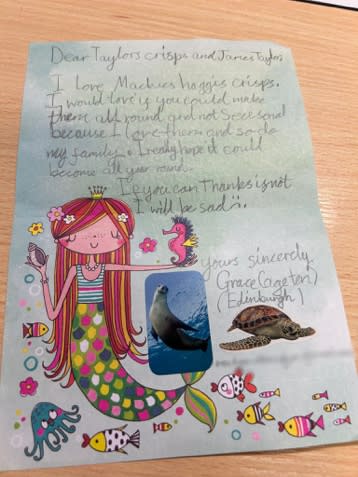 Dear Taylors crisps and James Taylor
I love Mackies haggis crisps.
I would love if you could make
them all round and not Seecesonal
because I love them and so do
my family. I really hope it could
become all year round.
If you can thanks if not
I will be sad :(.
yours sincerely
Grace (age ten)
(Edinburgh)